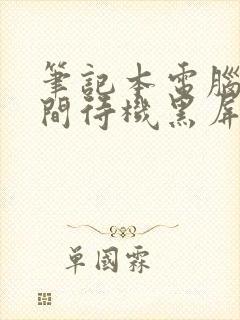 筆記本電腦
間待機黑屏
單國霖